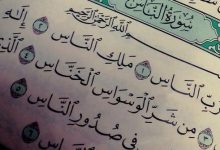 سُورَةُ النَّاسِ
بِسْمِ اللَّهِ الرَّحْمَٰنِ الرَّحِيمِ
رَبِّ النَّاسِ ١ مَلِكِ النَّاسِ ٢ إِلَٰهِ
مِن شَرِّ الْوَسْوَاسِ الْخَنَّاسِ ٤ الَّذِي
فِي صُدُورِ النَّاسِ ٥